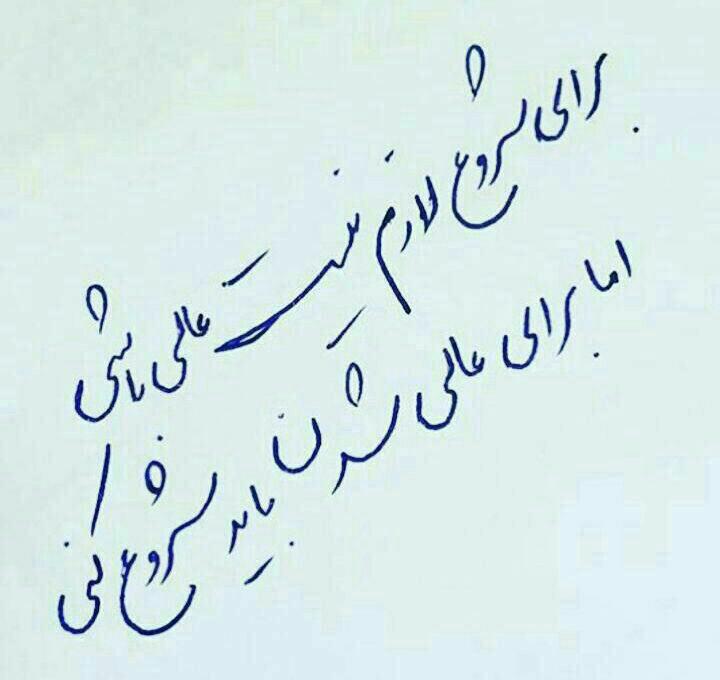 برای شروع لازم نیست عالی باشی
اما برای عالی شدن باید شروع کنی